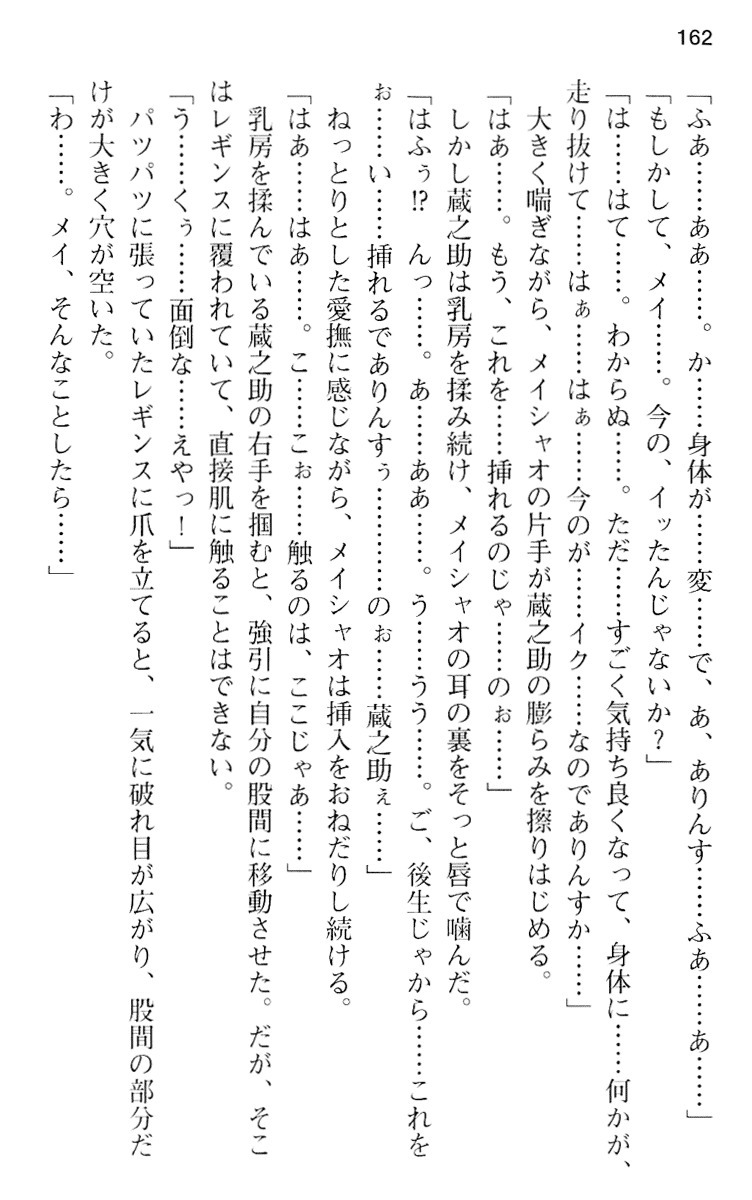 162
「ふあ……ああ……。か……身体が……変……で、あ、ありんす……ふあ……あ……」
「もしかして、メイ……。今の、イッたんじゃないか？」
「は……はて……。わからぬ……。ただ……すごく気持ち良くなって、身体に……何かが、
走り抜けて……はぁ……はぁ……今のが……イク……なのでありんすか……」
大きく喘ぎながら、メイシャオの片手が蔵之助の膨らみを擦りはじめる。
「はあ……。もう、これを……挿れるのじゃ……のぉ……」
しかし蔵之助は乳房を揉み続け、メイシャオの耳の裏をそっと唇で噛んだ。
「はふぅ!?　んっ……。あ……ああ……。う……うう……。ご、後生じゃから……これを
ぉ……い……挿れるでありんすぅ…………のぉ……蔵之助ぇ……」
ねっとりとした愛撫に感じながら、メイシャオは挿入をおねだりし続ける。
「はあ……はあ……。こ……こぉ……触るのは、ここじゃあ……」
乳房を揉んでいる蔵之助の右手を掴むと、強引に自分の股間に移動させた。だが、そこ
はレギンスに覆われていて、直接肌に触ることはできない。
「う……くぅ……面倒な……えやっ！」
パツパツに張っていたレギンスに爪を立てると、一気に破れ目が広がり、股間の部分だ
けが大きく穴が空いた。
「わ……。メイ、そんなことしたら……」